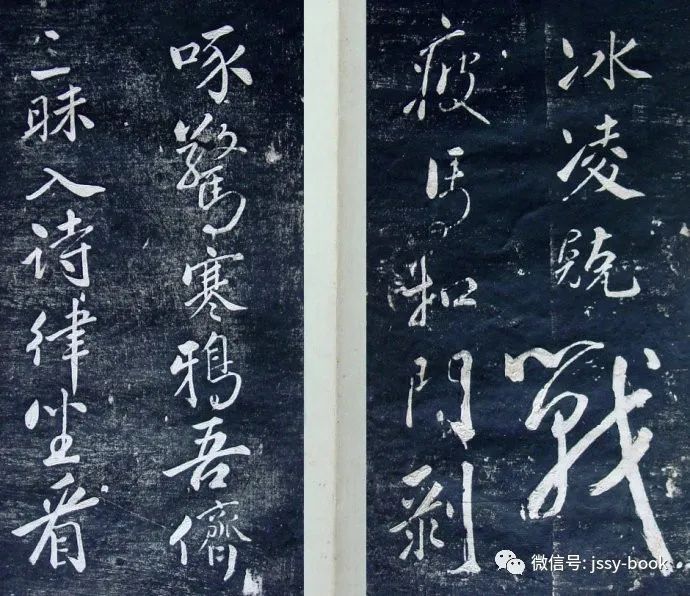 冰凌兢戰
疲馬扣門剥
啄驚寒鴉吾儕
三昧入詩律坐看
微信号: jssy-book